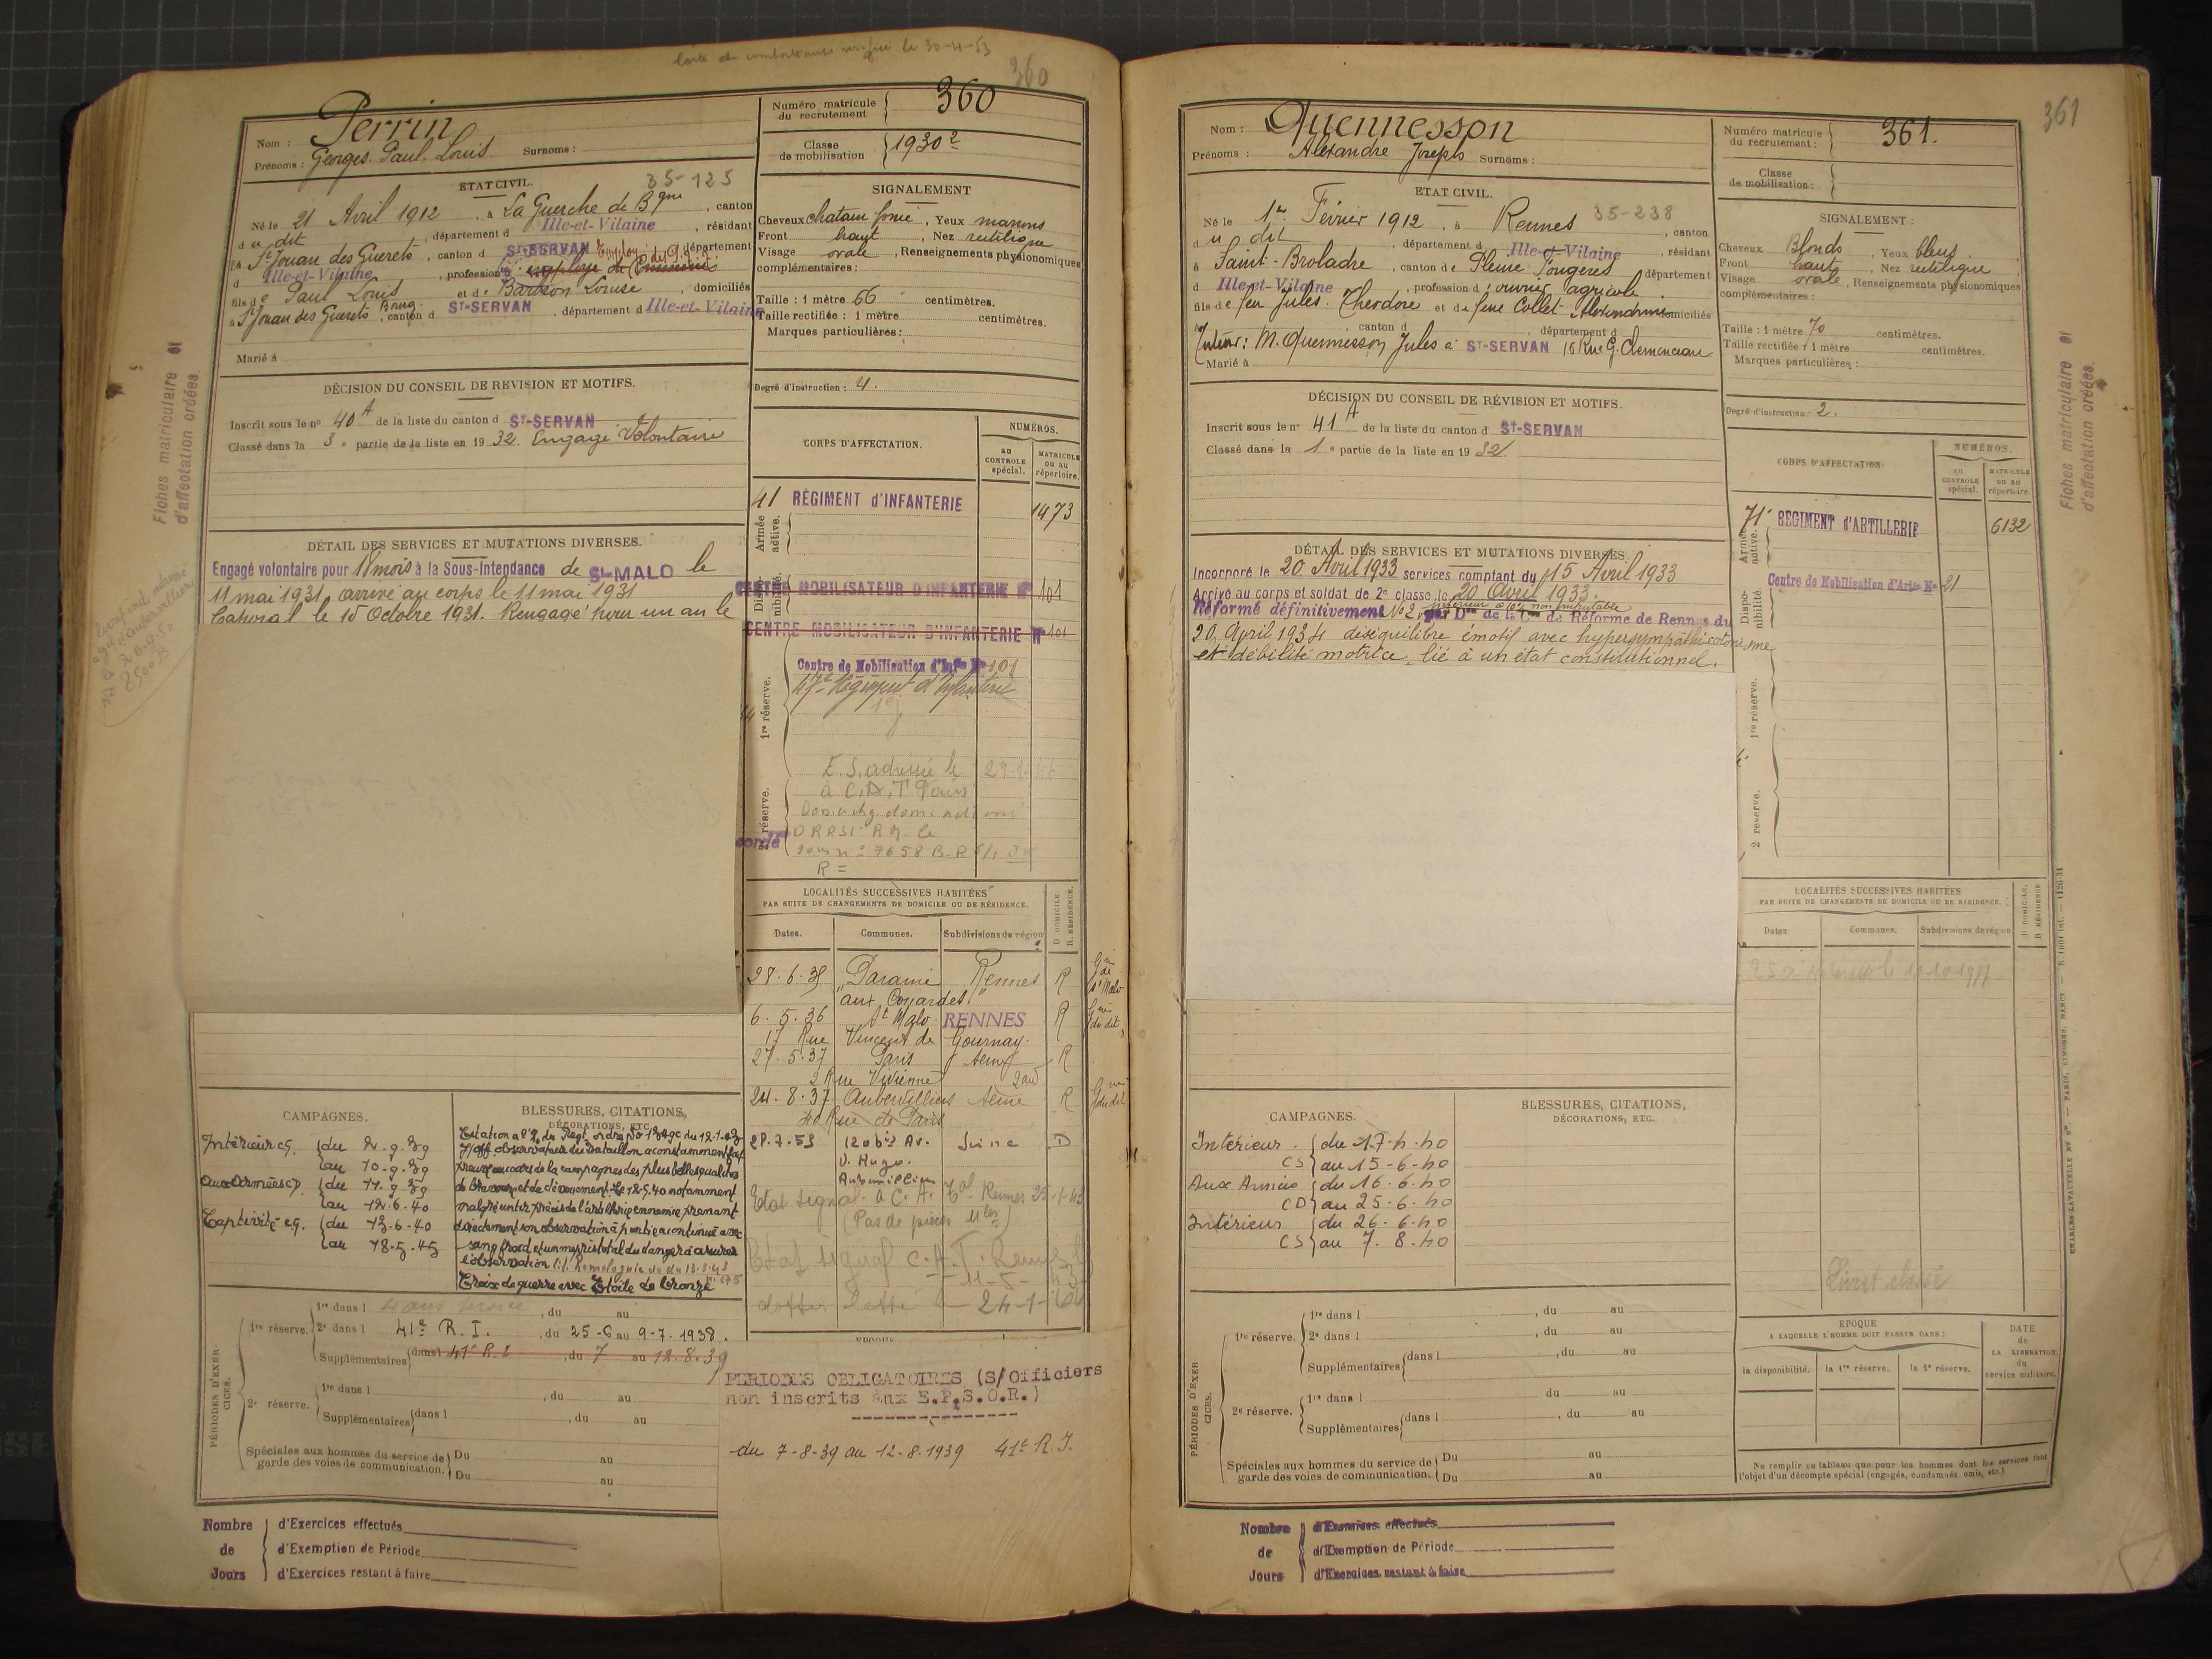 360
Nom : Perrin
Prénoms : Georges Paul Louis Surnoms :
Numéro matricule du recrutement 360
Classe de mobilisation 1930
ETAT CIVIL. 35-125
Né le 21 Avril 1912, à La Guerche de Bgne, canton
du dit, département d Ille-et-Vilaine, résidant
à St Jouan des Guerets, canton d St-SERVAN département
d Ille-et-Vilaine, profession d employé de
fils de Paul Louis et de Barbeon Louise, domiciliés
à St Jouan des Guerets Bourg, canton d St-SERVAN, département d Ille-et-Vilaine
Marié à
SIGNALEMENT
Cheveux chatain foncé, Yeux marrons
Front haut, Nez rectiligne
Visage ovale, Renseignements physionomiques
complémentaires :
Taille : 1 mètre 66 centimètres.
Taille rectifiée : 1 mètre centimètres.
Marques particulières :
Degré d'instruction : 4.
DÉCISION DU CONSEIL DE REVISION ET MOTIFS.
Inscrit sous le no 40 A de la liste du canton d St-SERVAN
Classé dans la 3e partie de la liste en 1932. Engagé Volontaire
DÉTAIL DES SERVICES ET MUTATIONS DIVERSES.
Engagé volontaire pour 18 mois à la Sous-Intendance de St-MALO le
11 mai 1931, arrivé au corps le 11 mai 1931
Caporal le 15 Octobre 1931. Rengagé pour un an le
Fiches matriculaire et
d'affectation créées.
CORPS D'AFFECTATION.
NUMÉROS.
au CONTROLE spécial.
MATRICULE ou au répertoire.
Armée active.
41 RÉGIMENT d'INFANTERIE 1473
Disponibilité.
CENTRE MOBILISATEUR D'INFANTERIE N° 101
CENTRE MOBILISATEUR D'INFANTERIE N° 101
1re réserve.
Centre de Mobilisation d'Infie No 101
47e Régiment d'Infanterie
2e réserve.
E. S. adressé le 29-1-46
LOCALITÉS SUCCESSIVES HABITÉES
PAR SUITE DE CHANGEMENTS DE DOMICILE OU DE RÉSIDENCE.
D. DOMICILE. R. RÉSIDENCE.
Dates. Communes. Subdivisions de région
28.6.35 Paramé Rennes R
"aux Couardes"
6.5.36 St Malo RENNES R
17 Rue Vincent de Gournay.
27.5.37 Paris Seine R
2 Rue Vivienne
24.8.37 Aubervilliers Seine R
40 Rue de Paris
28.7.53 120 bis Av. Seine D
V. Hugo.
Aubervilliers
(Pas de pièces Mles)
CAMPAGNES.
Intérieur CS. du 2.9.39
au 10.9.39
Aux Armées CD. du 11.9.39
au 12.6.40
Captivité CS. du 13.6.40
au 18.5.45
BLESSURES, CITATIONS,
DÉCORATIONS, ETC.
Citation à l'O. du Régt. ordre No
S/off. observateur du bataillon a constamment fait
preuve au cours de la campagne des plus belles qualités
de bravoure et de dévouement. Le 12.5.40 notamment
malgré un tir précis de l'artillerie ennemie, prenant
directement son observatoire à partie a continué avec
sang froid et un mépris total du danger à assurer
l'observation
Croix de guerre avec Etoile de bronze
PÉRIODES D'EXERCICES.
1re réserve.
1re dans l , du au
2e dans l 41e R. I. , du 25-6 au 9-7-1938.
Supplémentaires dans l 41e R.I , du 7 au 12.8.39
2e réserve.
1re dans l , du au
Supplémentaires dans l , du au
Spéciales aux hommes du service de garde des voies de communication.
Du au
Du au
PERIODES OBLIGATOIRES (S/Officiers
non inscrits aux E.P.S.O.R.)
du 7-8-39 au 12-8-1939 41e R.I.
Nombre de Jours
d'Exercices effectués
d'Exemption de Période
d'Exercices restant à faire
361
Nom : Quennesson
Prénoms : Alexandre Joseph Surnoms :
Numéro matricule du recrutement : 361.
Classe de mobilisation :
ETAT CIVIL. 35-238
Né le 1er Février 1912, à Rennes, canton
du dit, département d Ille-et-Vilaine, résidant
à Saint-Broladre, canton de Pleine Fougères département
d Ille-et-Vilaine, profession d'ouvrier agricole
fils de feu Jules Théodore et de feue Collet Alexandrine domiciliés
, canton d , département d
Tuteur : M. Quennesson Jules à St-SERVAN 16 Rue G. Clemenceau
Marié à
SIGNALEMENT :
Cheveux Blonds, Yeux bleus
Front haut, Nez rectiligne
Visage ovale, Renseignements physionomiques
complémentaires :
Taille : 1 mètre 70 centimètres.
Taille rectifiée : 1 mètre centimètres.
Marques particulières :
Degré d'instruction : 2.
DÉCISION DU CONSEIL DE RÉVISION ET MOTIFS.
Inscrit sous le no 41 A de la liste du canton d St-SERVAN
Classé dans la 1e partie de la liste en 1932
DÉTAIL DES SERVICES ET MUTATIONS DIVERSES.
Incorporé le 20 Avril 1933 services comptant du 15 Avril 1933
Arrivé au corps et soldat de 2e classe, le 20 Avril 1933.
Réformé définitivement No 2, inférieur à 10% non imputable par Don de la Con de Réforme de Rennes du
20 April 1934 déséquilibre émotif avec hypersympathicotonisme
et débilité motrice, lié à un état constitutionnel.
Fiches matriculaire et
d'affectation créées.
CORPS D'AFFECTATION
NUMÉROS.
AU CONTROLE spécial.
MATRICULE ou au répertoire.
Armée active.
71e REGIMENT d'ARTILLERIE 6132
Disponibilité.
Centre de Mobilisation d'Artie No 21
1re réserve.
2 réserve.
LOCALITÉS SUCCESSIVES HABITÉES
PAR SUITE DE CHANGEMENTS DE DOMICILE OU DE RÉSIDENCE.
D. DOMICILE. R. RÉSIDENCE
Dates. Communes. Subdivisions de région
Livret classé
CAMPAGNES.
Intérieur CS du 17-4-40
au 15-6-40
Aux Armées CD du 16.6.40
au 25-6-40
Intérieur CS du 26.6.40
au 7.8.40
BLESSURES, CITATIONS,
DÉCORATIONS, ETC.
PÉRIODES D'EXERCICES.
1re réserve.
1re dans l , du au
2e dans l , du au
Supplémentaires dans l , du au
2e réserve.
1re dans l du au
Supplémentaires dans l , du au
Spéciales aux hommes du service de garde des voies de communication.
Du au
Du au
EPOQUE
A LAQUELLE L'HOMME DOIT PASSER DANS :
la disponibilité. la 1re réserve. la 2e réserve.
DATE de LA LIBÉRATION du service militaire.
Ne remplir ce tableau que pour les hommes dont les services font
l'objet d'un décompte spécial (engagés, condamnés, omis, etc.)
Nombre de Jours
d'Exercices effectués
d'Exemption de Période
d'Exercices restant à faire